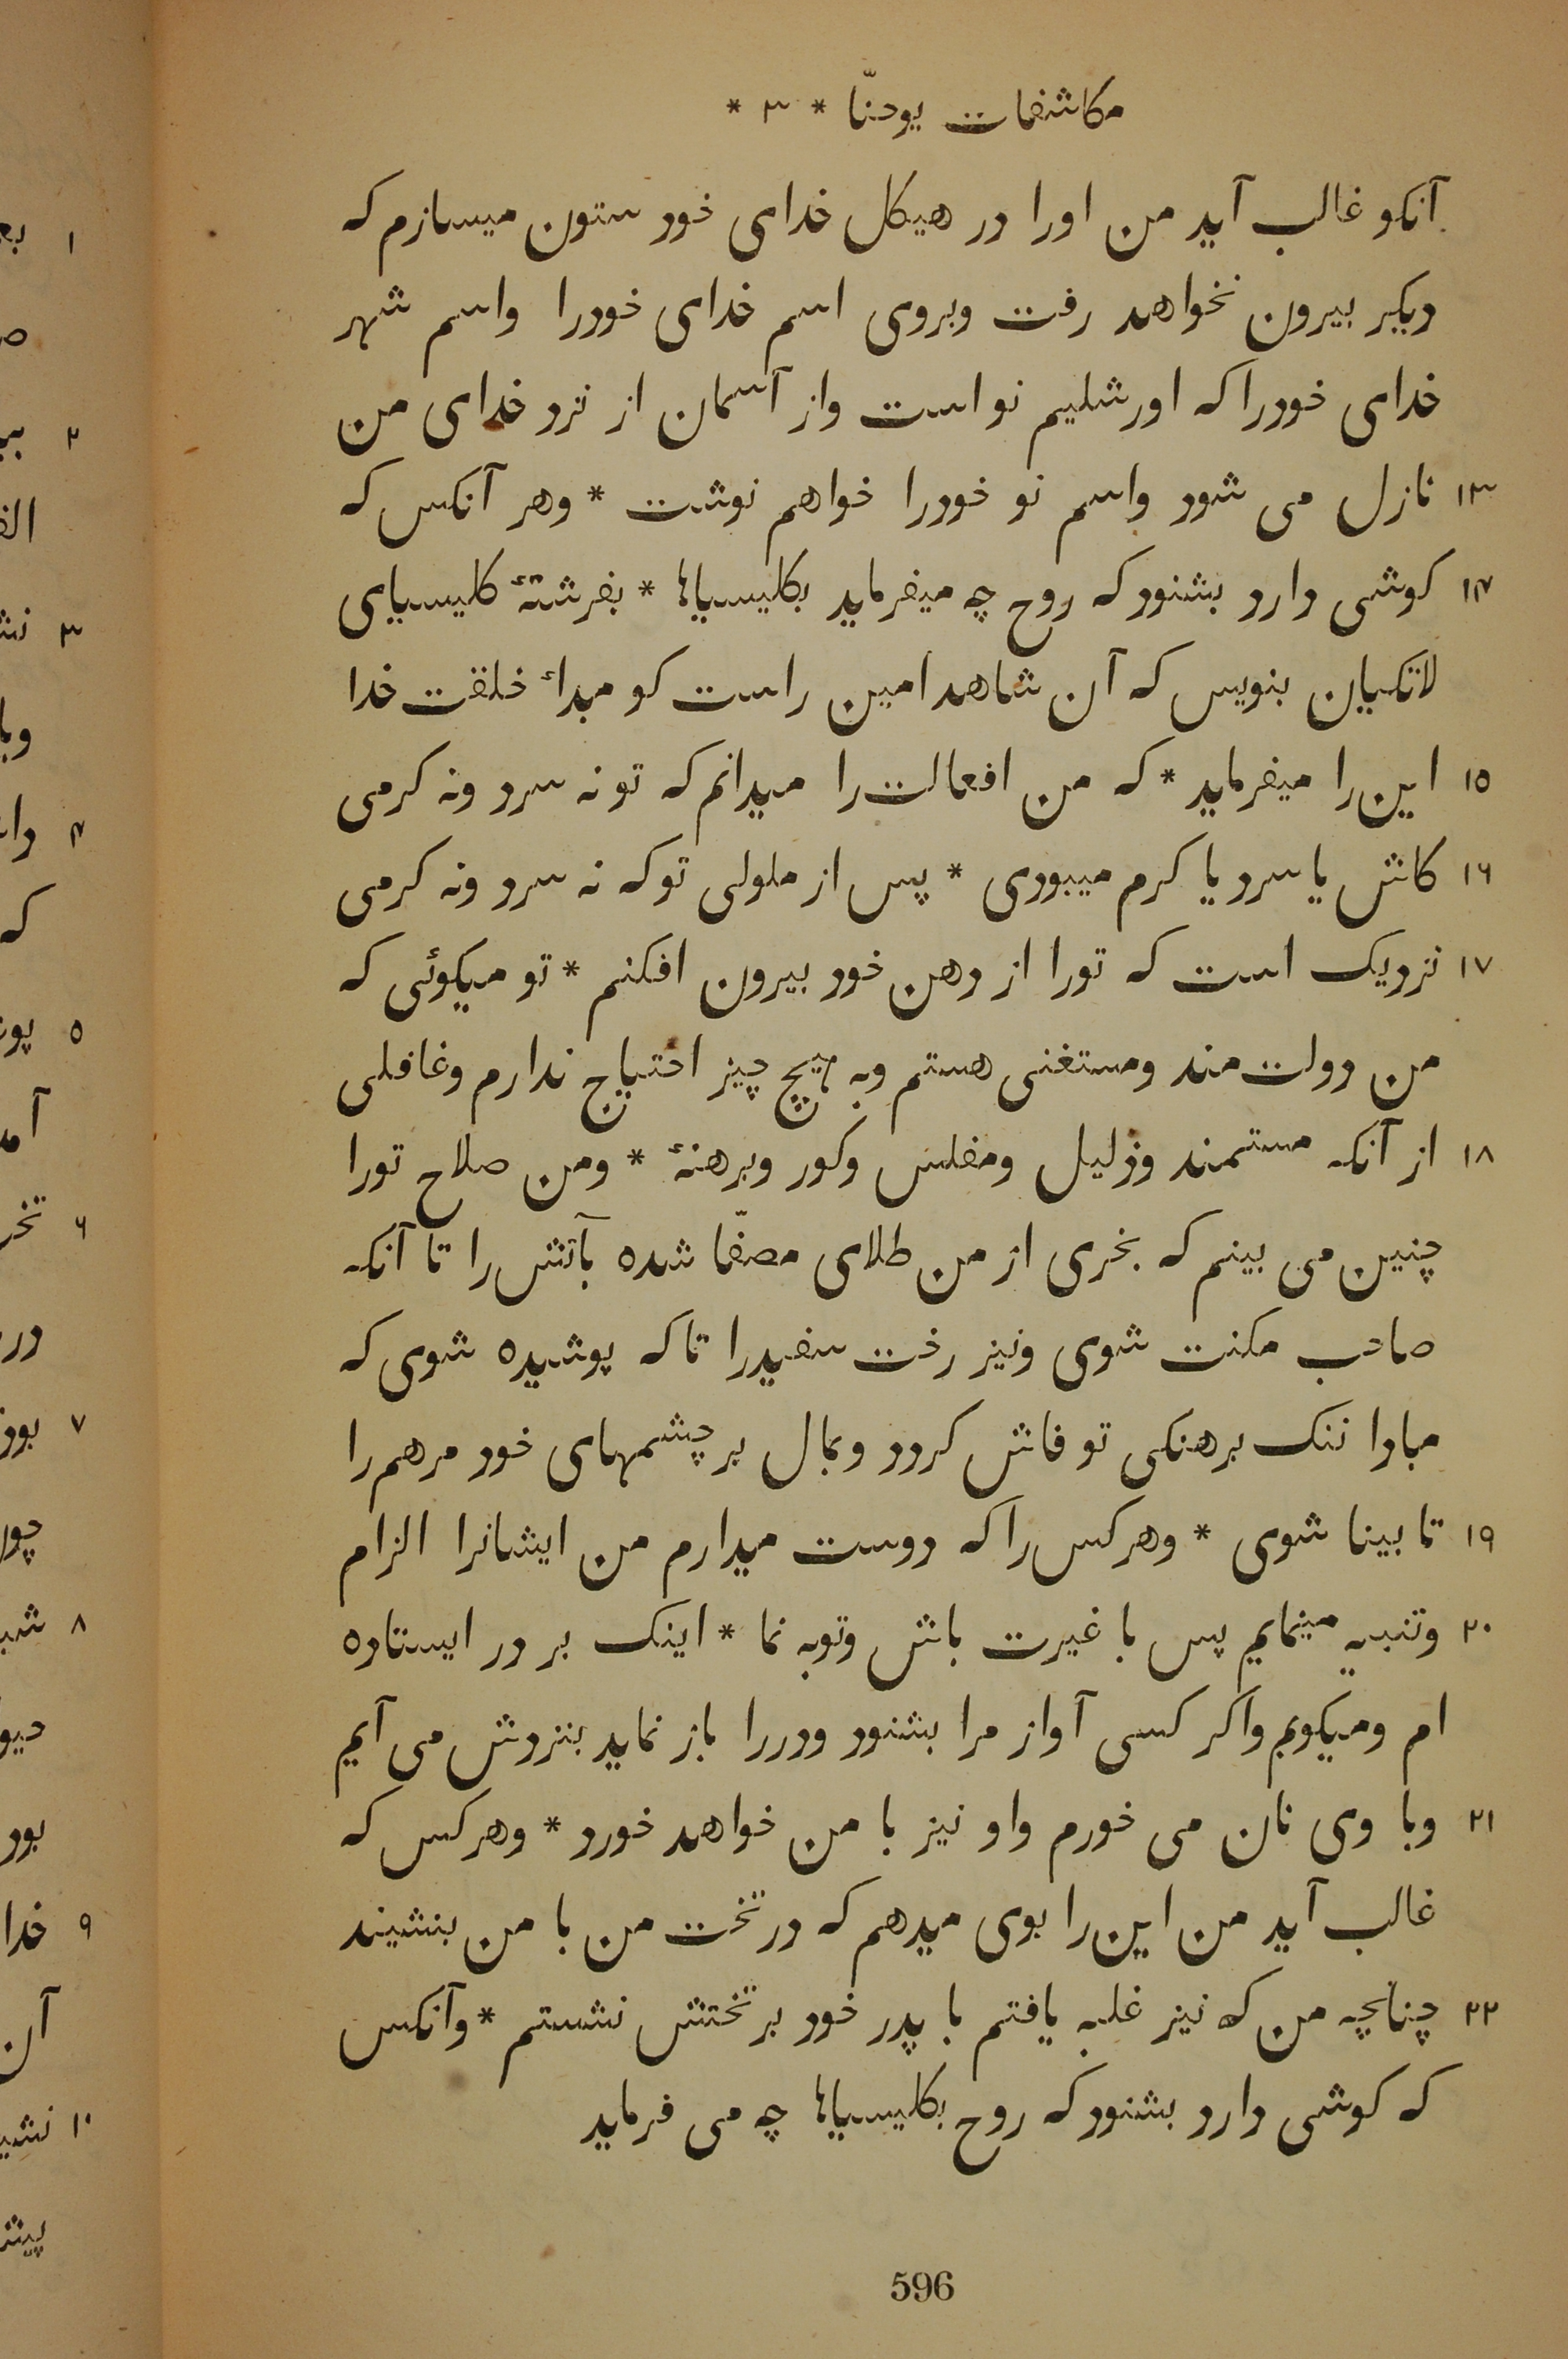 مکاشفات یوحنّا * ٣ *
آنکو غالب آید من اورا در هیکل خدای خود ستون میسازم که
دیکر بیرون نخواهد رفت وبروی اسم خدای خودرا واسم شهر
خدای خودرا که اورشلیم نو است واز آسمان از نزد خدای من
١٣ نازل می شود واسم نو خودرا خواهم نوشت * وهر آنکس که
١٤ کوشی دارد بشنود که روح چه میفرماید بکلیسیاها * بفرشتهٔ کلیسیای
لاتکیان بنویس که آن شاهد امین راست کو مبداء خلقت خدا
١٥ این را میفرماید * که من افعالت را میدانم که تو نه سرد ونه کرمی
١٦ کاش یا سرد یا کرم میبودی * پس از ملولی تو که نه سرد ونه کرمی
١٧ نزدیک است که تورا از دهن خود بیرون افکنم * تو میکوئی که
من دولت مند ومستغنی هستم وبه هیچ چیز احتیاج ندارم وغافلی
١٨ از آنکه مستمند وذلیل ومفلس وکور وبرهنهٔ * ومن صلاح تورا
چنین می بینم که بخری از من طلای مصفّا شده بآتش را تا آنکه
صاحب مکنت شوی ونیز رخت سفیدرا تا که پوشیده شوی که
مبادا ننک برهنکی تو فاش کردد وبمال بر چشمهای خود مرهم را
١٩ تا بینا شوی * وهر کس را که دوست میدارم من ایشانرا الزام
٢٠ وتنبیه مینمایم پس با غیرت باش وتوبه نما * اینک بر در ایستاده
ام ومیکویم واکر کسی آواز مرا بشنود ودررا باز نماید بنزدش می آیم
٢١ وبا وی نان می خورم واو نیز با من خواهد خورد * وهر کس که
غالب آید من این را بوی میدهم که در تخت من با من بنشیند
٢٢ چنانچه من که نیز غلبه یافتم با پدر خود بر تختش نشستم * وآنکس
که کوشی دارد بشنود که روح بکلیسیاها چه می فرماید
596